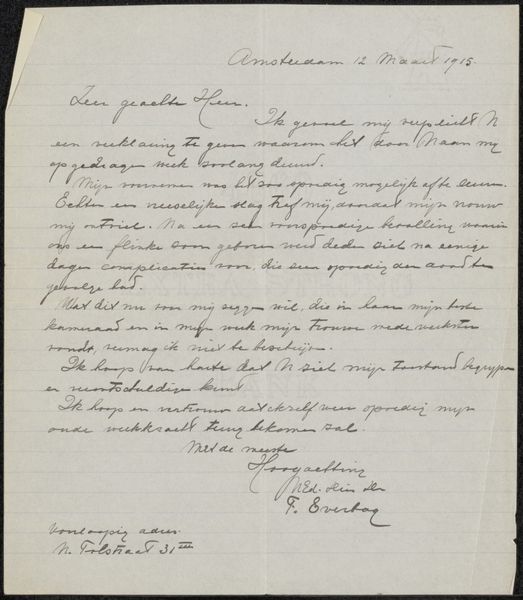 Amsterdam 12 Maart 1915.
Zeer geachte Heer.
Ik gevoel mij verplicht U
een verklaring te geven waarom het door U aan mij
opgedragen werk zoolang duurd.
Mijn voornemen was het zoo spoedig mogelijk af te leveren.
Echter een vreeselijke slag tref mij, doordat mijn vrouw
mij ontviel. Na een zeer voorspoedige bevalling waarin
ons een flinke zoon geboren werd deden zich na eenige
dagen complicaties voor, die zeer spoedig den dood ten
gevolge had.
Wat dit nu voor mij zeggen wil, die in haar mijn beste
kameraad en in mijn werk mijn trouwe mede werkster
vondt, vermag ik niet te beschrijven.
Ik hoop van harte dat U zich mijn toestand begrijpen
en verontschuldigen kunt
Ik hoop en vertrouw dat ik zelf weer spoedig mijn
oude werkkracht terug bekomen zal.
Met de meeste
Hoogachting
UEd. Dw Dr
F. Everbag
Voorloopig adres
N. Tolstraat 31 III